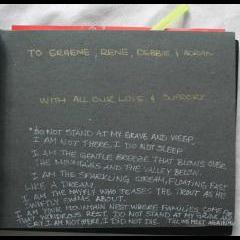 TO GRAEME, RENE, DEBBIE & ADRIAN
WITH ALL OUR LOVE & SUPPORT
"DO NOT STAND AT MY GRAVE AND WEEP,
I AM NOT THERE, I DO NOT SLEEP
I AM THE GENTLE BREEZE THAT BLOWS OVER
THE MOUNTAINS AND THE VALLEY BELOW.
I AM THE SPARKLING STREAM, FLOATING PAST
LIKE A DREAM.
I AM THE MAYFLY WHO TEASES THE TROUT AS HE
SWIFTLY SWIMS ABOUT.
I AM YOUR MOUNTAIN NEST WHERE FAMILIES COME
WONDROUS REST. DO NOT STAND AT MY GRAVE
CRY I AM NOT HERE, I DID NOT DIE. TILL WE MEET AGAIN